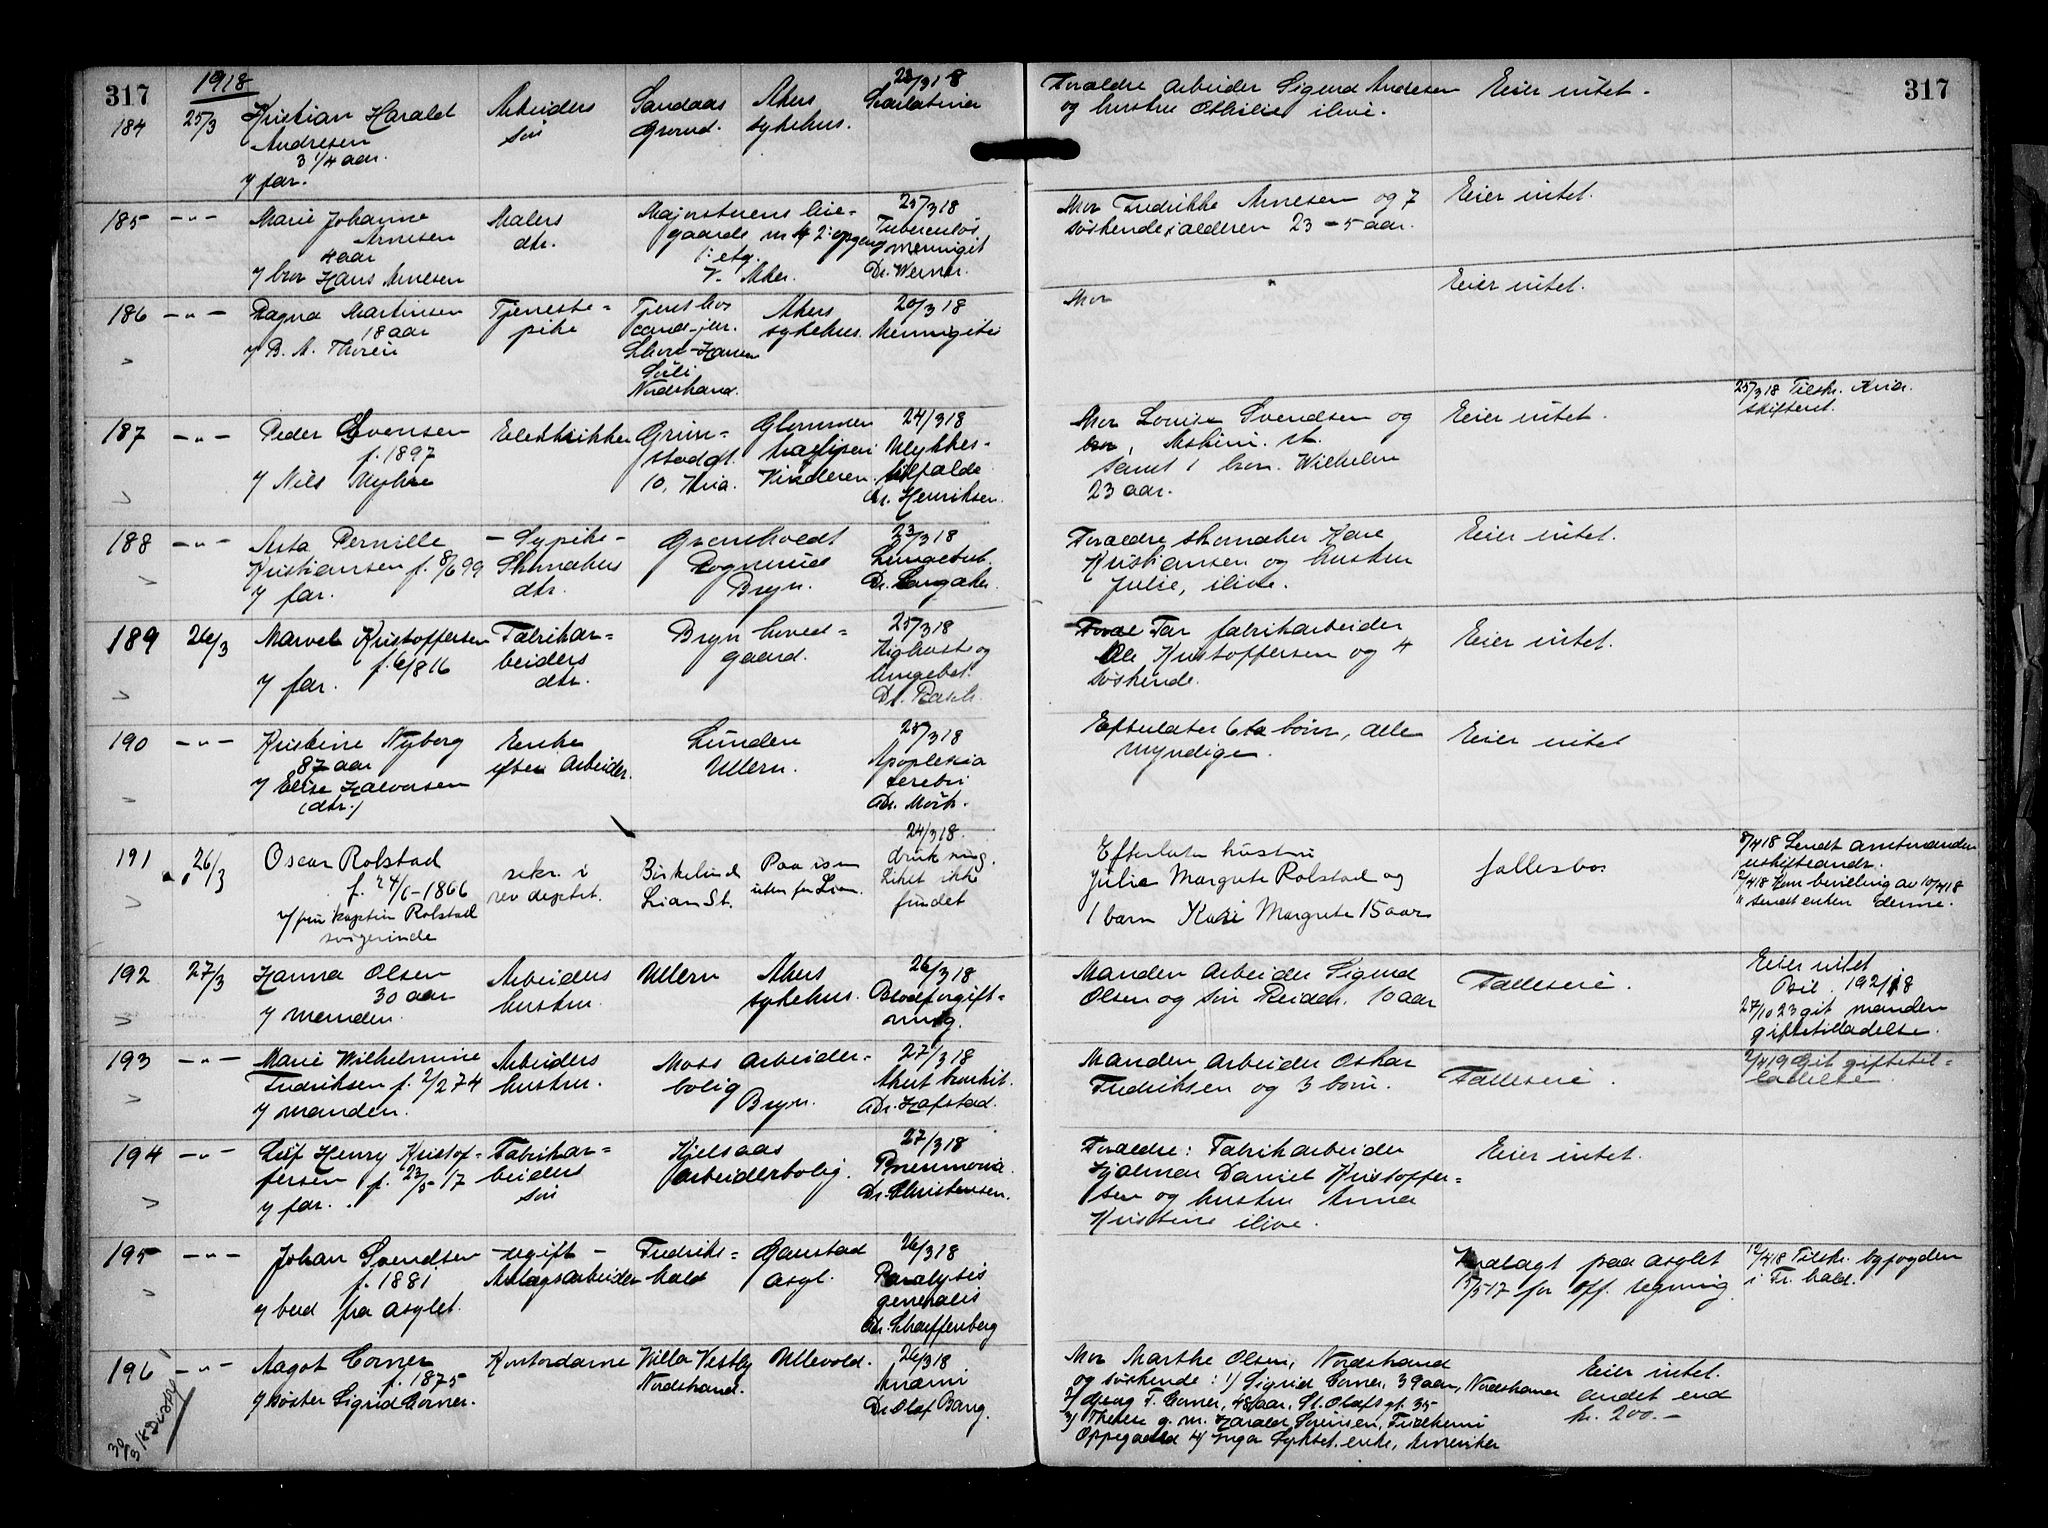 317
1918
184
25/3
Kristian Harald
Andresen
3 1/4 aar.
y far.
Arbeiders
søn
Sandaas
Grorud.
Akers
sykehus.
23/3 18
Scarlatina
Forældre arbeider Sigurd Andresen
og hustru Othilie ilive.
Eier intet.
317
185
-"-
Marie Johanne
Arnesen
4 aar
y bror Hans Arnesen
Malers
dtr.
Majorstuens leie-
gaarde nr 4 2. opgang
1. etg.
V. Aker.
25/3 18
Tuberculøs
meningit
Dr. Werner.
Mor Fredrikke Arnesen og 7
søskende i alderen 23 - 5 aar.
Eier intet.
186
-"-
Ragna Martinsen
18 aar
y B. A. Thoren
Tjeneste-
pike
Tjent hos
Nordstrand.
Akers
sykehus.
20/3 18
Meningitis
Mor
Eier intet.
187
-"-
Peder Evensen
f. 1897
y Nils Myhre
Elektrikker
Grim-
stadgt.
10, Kria.
Glommen
træsliperi
Vinderen.
24/3 18
Ulykkes-
tilfælde
Dr. Henriksen.
Mor Lovise Svendsen og
samt 1 bror. Wilhelm
23 aar.
Eier intet.
25/3 18 Tilskr. Kria.
skifteret.
188
-"-
Asta Pernille
Kristiansen f. 8/6 99
y far.
- Sypike -
Skomakers
dtr.
Grønholdt
Bryn.
23/3 18
Lungetub.
Dr. Langaker.
Forældre skomaker Kare
Kristiansen og hustru
Julie, ilive.
Eier intet.
189
26/3
Marvel Kristoffersen
f. 6/8 16
y far.
Fabrikar-
beiders
dtr.
Bryn hoved-
gaard.
25/3 18
Kighoste og
lungebet.
Far fabrikarbeider
Ole Kristoffersen og 4
søskende.
Eier intet.
190
-"-
Kristine Nyborg
87 aar
y Elise Halvorsen
(dtr.)
Enke
efter arbeider.
Lunden
Ullern.
25/3 18
Apoplexia
cerebri
Dr. Mørk.
Efterlater 6 ta børn, alle
myndige.
Eier intet
191
26/3
Oscar Rolstad
f. 24/6 - 1866
y fru kaptein Rolstad
svigerinde
sekr. i
rev deptet.
Birkelund
Lian St.
Paa isen
utenfor Lian.
24/3 18.
drukning.
Liket ikke
fundet
Efterlater hustru
Julie Margrete Rolstad og
1 barn Kari Margrete 15 aar
fællesbo.
8/4 18 Sendt amtmanden
uskifteandr.
12/4 18 Kom bevilling av 10/4 18
" sendt enken denne.
192
27/3
Hanna Olsen
30 aar
y manden.
Arbeiders
hustru.
Ullern
Akers
sykehus.
26/3 18
Blodforgift-
ning.
Manden arbeider Sigurd
Olsen og søn Reidar. 10 aar
Fælleseie.
Eier intet
Bil. 192/18
27/10 23 git manden
giftetilladelse.
193
-"-
Marie Wilhelmine
Fredriksen f. 2/2 74
y manden.
Arbeiders
hustru.
Moss arbeider-
bolig
Bryn.
27/3 18
Akut bronkit.
Dr. Hofstad.
Manden arbeider Oskar
Fredriksen og 3 børn.
Fælleseie.
2/4 19 Git giftetil-
ladelse
194
-"-
Leif Henry Kristof-
fersen f. 23/5 - 17
y far.
Fabrikar-
beiders
søn
Kjelsaas
arbeiderbolig.
27/3 18
Pneumonia.
Dr. Christensen.
Forældre: Fabrikarbeider
Hjalmar Daniel Kristoffer-
sen og hustru Anna
Kristine ilive.
Eier intet.
195
-"-
Johan Svendsen
f. 1881
y bud fra asylet.
- ugift -
Anlægsarbeider
Fredriks-
hald
Gaustad
asyl.
26/3 18
Paralysis
generalis
Dr. Scharffenberg
Indlagt paa asylet
15/5 17 for off. regning
12/4 18 Tilskr. byfogden
i Fr. hald.
196
-"-
Aagot Corner
f. 1875
y søster Sigrid Corner.
Kontordame
Villa Vestby
Nordstrand.
Ullevold.
26/3 18
Anæmi
Dr Olaf Bang.
Mor Marthe Olsen, Nordstrand
og søskende: 1) Sigrid Corner, 39 aar, Nordstrand
2) Georg F. Corner, 48 aar, St. Olafs gt. 35
3) Therese g. m. Harald Sørensen,
Oppegaard 4) Inga enke, Amerika
Eier intet.
andet end
kr. 200.-
30/3 18